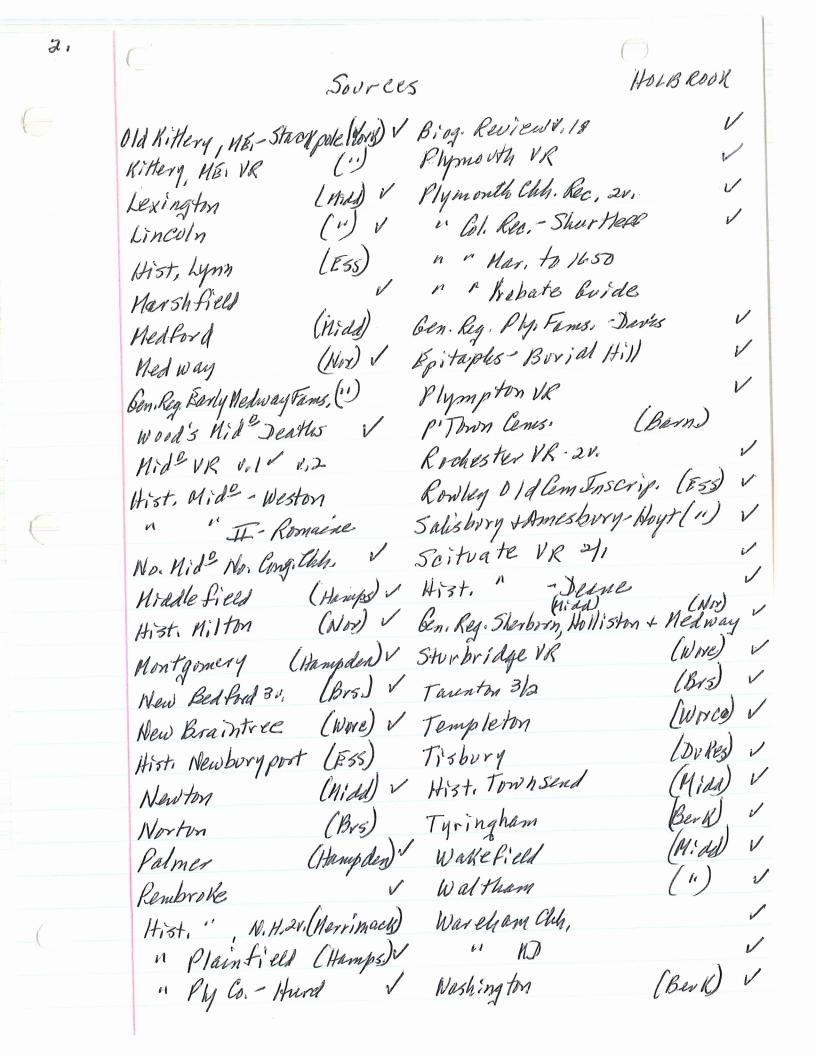 2.
Sources
HOLBROOK
Old Kittery, ME.-Stackpole (York) ✓
Kittery, ME. VR (")
Lexington (Midd) ✓
Lincoln (") ✓
Hist. Lynn (Ess)
Marshfield ✓
Medford (Midd)
Medway (Nor) ✓
Gen. Reg. Early Medway Fams. (")
Wood's Midº Deaths ✓
Midº VR v.1 ✓ v.2
Hist. Midº - Weston
" " II - Romaine
No. Midº No. Cong. Chh. ✓
Middlefield (Hamps) ✓
Hist. Milton (Nor) ✓
Montgomery (Hampden) ✓
New Bedford 3v. (Brs.) ✓
New Braintree (Worc) ✓
Hist. Newburyport (Ess)
Newton (Midd) ✓
Norton (Brs)
Palmer (Hampden) ✓
Pembroke ✓
Hist. ", N.H. 2v. (Merrimack)
" Plainfield (Hamps.) ✓
" Ply Co. - Hurd ✓
Biog. Review v. 18 ✓
Plymouth VR ✓
Plymouth Chh. Rec. 2v. ✓
" Col. Rec. - Shurtleff ✓
" " Mar. to 1650
" " Probate Guide
Gen. Reg. Ply. Fams. - Davis ✓
Epitaphs - Burial Hill ✓
Plympton VR ✓
P'Town Cems. (Barn.)
Rochester VR - 2v. ✓
Rowley Old Cem Inscrip. (Ess) ✓
Salisbury + Amesbury - Hoyt (") ✓
Scituate VR 2/1 ✓
Hist. " - Deane ✓
(Midd) (Nor)
Gen. Reg. Sherborn, Holliston + Medway ✓
Sturbridge VR (Worc) ✓
Taunton 3/2 (Brs) ✓
Templeton (Worco) ✓
Tisbury (Dukes) ✓
Hist. Townsend (Midd) ✓
Tyringham (Berk) ✓
Wakefield (Midd) ✓
Waltham (") ✓
Wareham Chh. ✓
" ✓
Washington (Berk) ✓